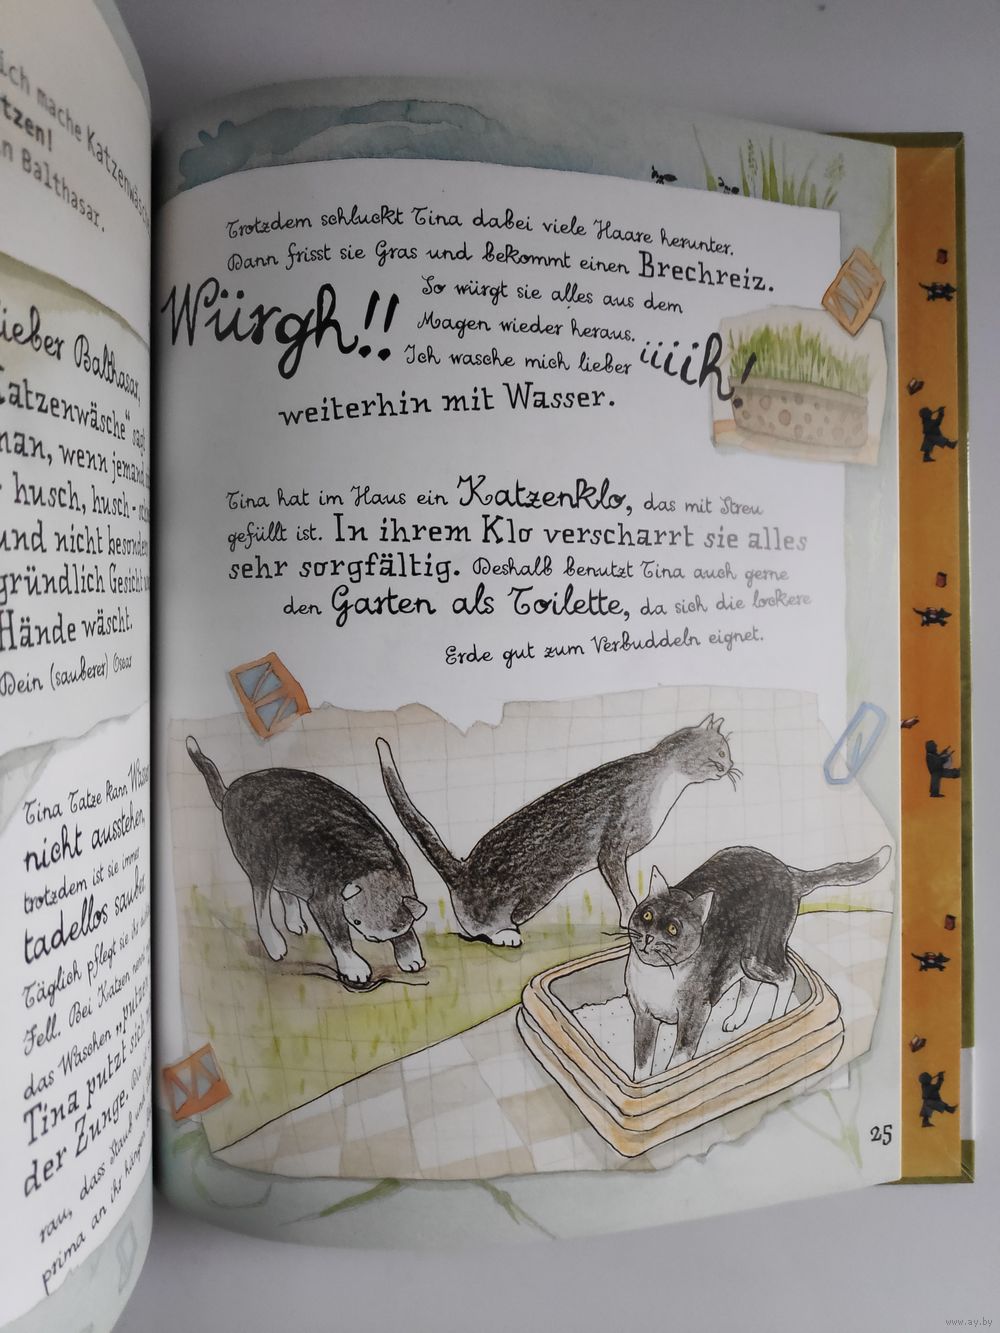 ich mache Katzenwäsche
tzen!
n Balthasar.
ieber Balthasar,
Katzenwäsche" sagt
man, wenn jemand
husch, husch -
und nicht besonders
gründlich Gesicht
Hände wäscht.
Dein (sauberer) Oscar
Tina Tatze kann Wasser
nicht ausstehen,
trotzdem ist sie immer
tadellos sauber.
Täglich pflegt sie ihr
Fell. Bei Katzen nennt
das Waschen „putzen
Tina putzt sich
der Zunge.
rau, dass Staub und
prima an ihr hängen
Trotzdem schluckt Tina dabei viele Haare herunter.
Dann frisst sie Gras und bekommt einen Brechreiz.
Würgh!! So würgt sie alles aus dem
Magen wieder heraus.
Ich wasche mich lieber iiiih!
weiterhin mit Wasser.
Tina hat im Haus ein Katzenklo, das mit Streu
gefüllt ist. In ihrem Klo verscharrt sie alles
sehr sorgfältig. Deshalb benutzt Tina auch gerne
den Garten als Toilette, da sich die lockere
Erde gut zum Verbuddeln eignet.
25
www.ay.by